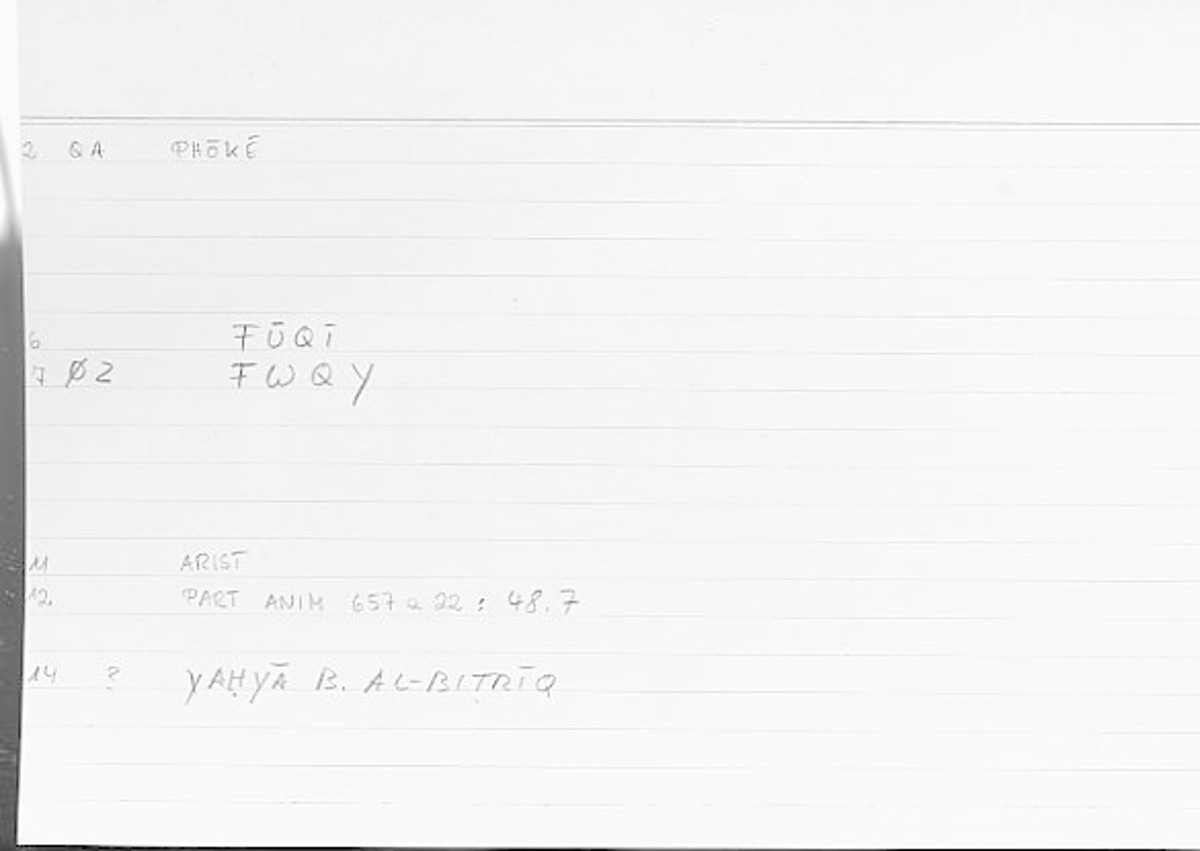 2 QA PHŌKĒ
6 FŪQĪ
7 Ø2 FWQY
11 ARIST
12 PART ANIM 657 a 22 : 48.7
14 ? YAḤYĀ B. AL-BIṬRĪQ